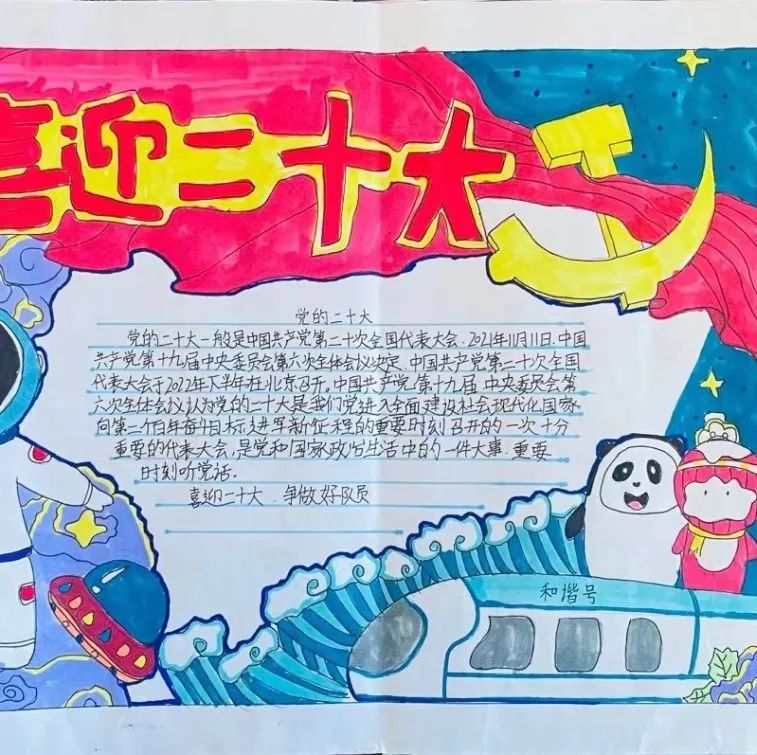 喜迎二十大
党的二十大
党的二十大一般是中国共产党第二十次全国代表大会.2021年11月11日.中国
共产党第十九届中央委员会第六次全体会议决定.中国共产党第二十次全国
代表大会于2022年下半年在北京召开.中国共产党.第十九届.中央委员会第
六次全体会议认为党的二十大是我们党进入全面建设社会现代化国家
向第二个百年奋斗目标进军新征程的重要时刻召开的一次十分
重要的代表大会,是党和国家政治生活中的一件大事.重要
时刻听党话.
喜迎二十大.争做好队员
和谐号